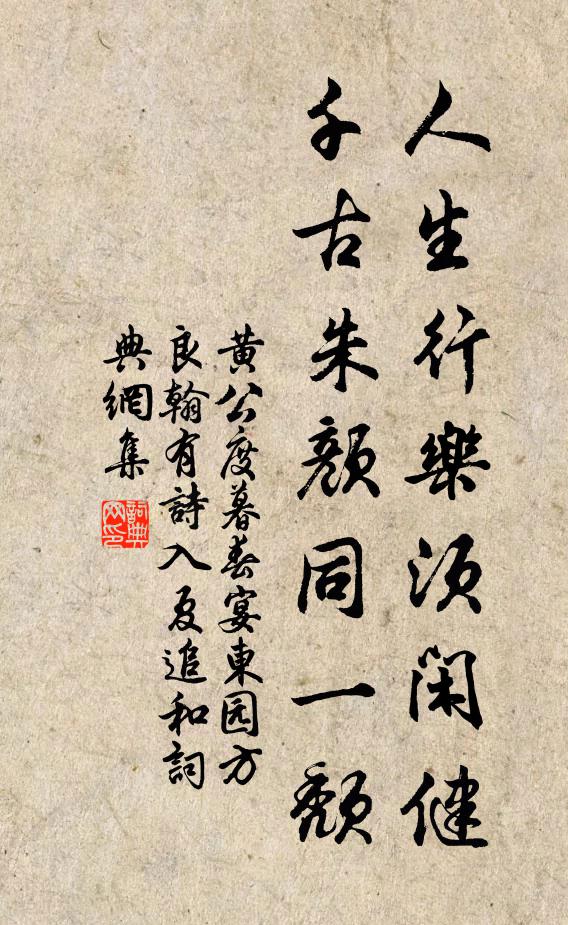 人生行樂須閑健
千古朱顔同一頹
黄公度暮春宴東园方
良翰有詩入夏追和詞
典網集
詞典
网印